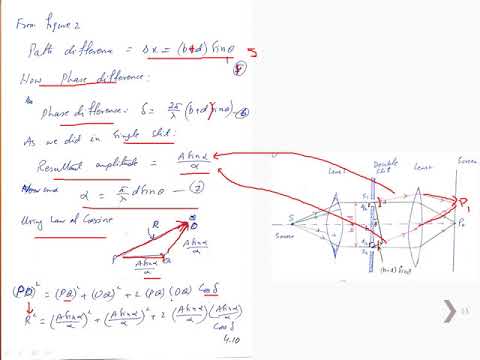 From figure 2
Path difference = Δx = (b+d) sinθ
Now Phase difference:
Phase difference: δ = 2π/λ (b+d) sinθ - ⑥
As we did in single slit:
Resultant amplitude = A sinα/α
α = π/λ d sinθ — ⑦
Using Law of Cosine
R
P
Q
A sinα/α
A sinα/α
(PO)² = (PQ)² + (OQ)² + 2 (PQ) (OQ) Cos δ
R² = (A sinα/α)² + (A sinα/α)² + 2 (A sinα/α) (A sinα/α)
Cos δ
4.10
Double
Slit
Screen
S
Source
P₁
P₀
(b+d) sinθ